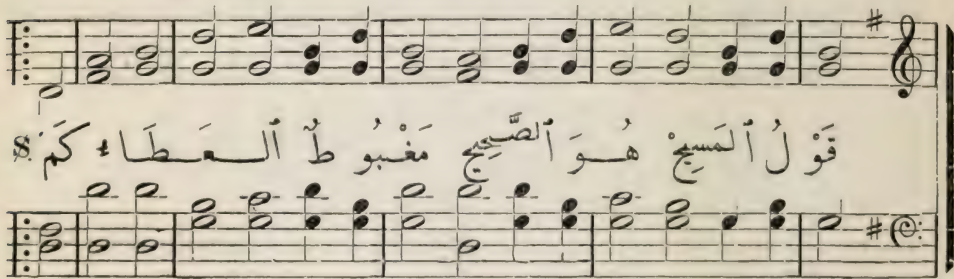 قَوْ لُ ٱلْمَسِيحْ هُوَ ٱلصَّحِيحِ مَغْبُو طٌ ٱلْعَطَاء كَمْ